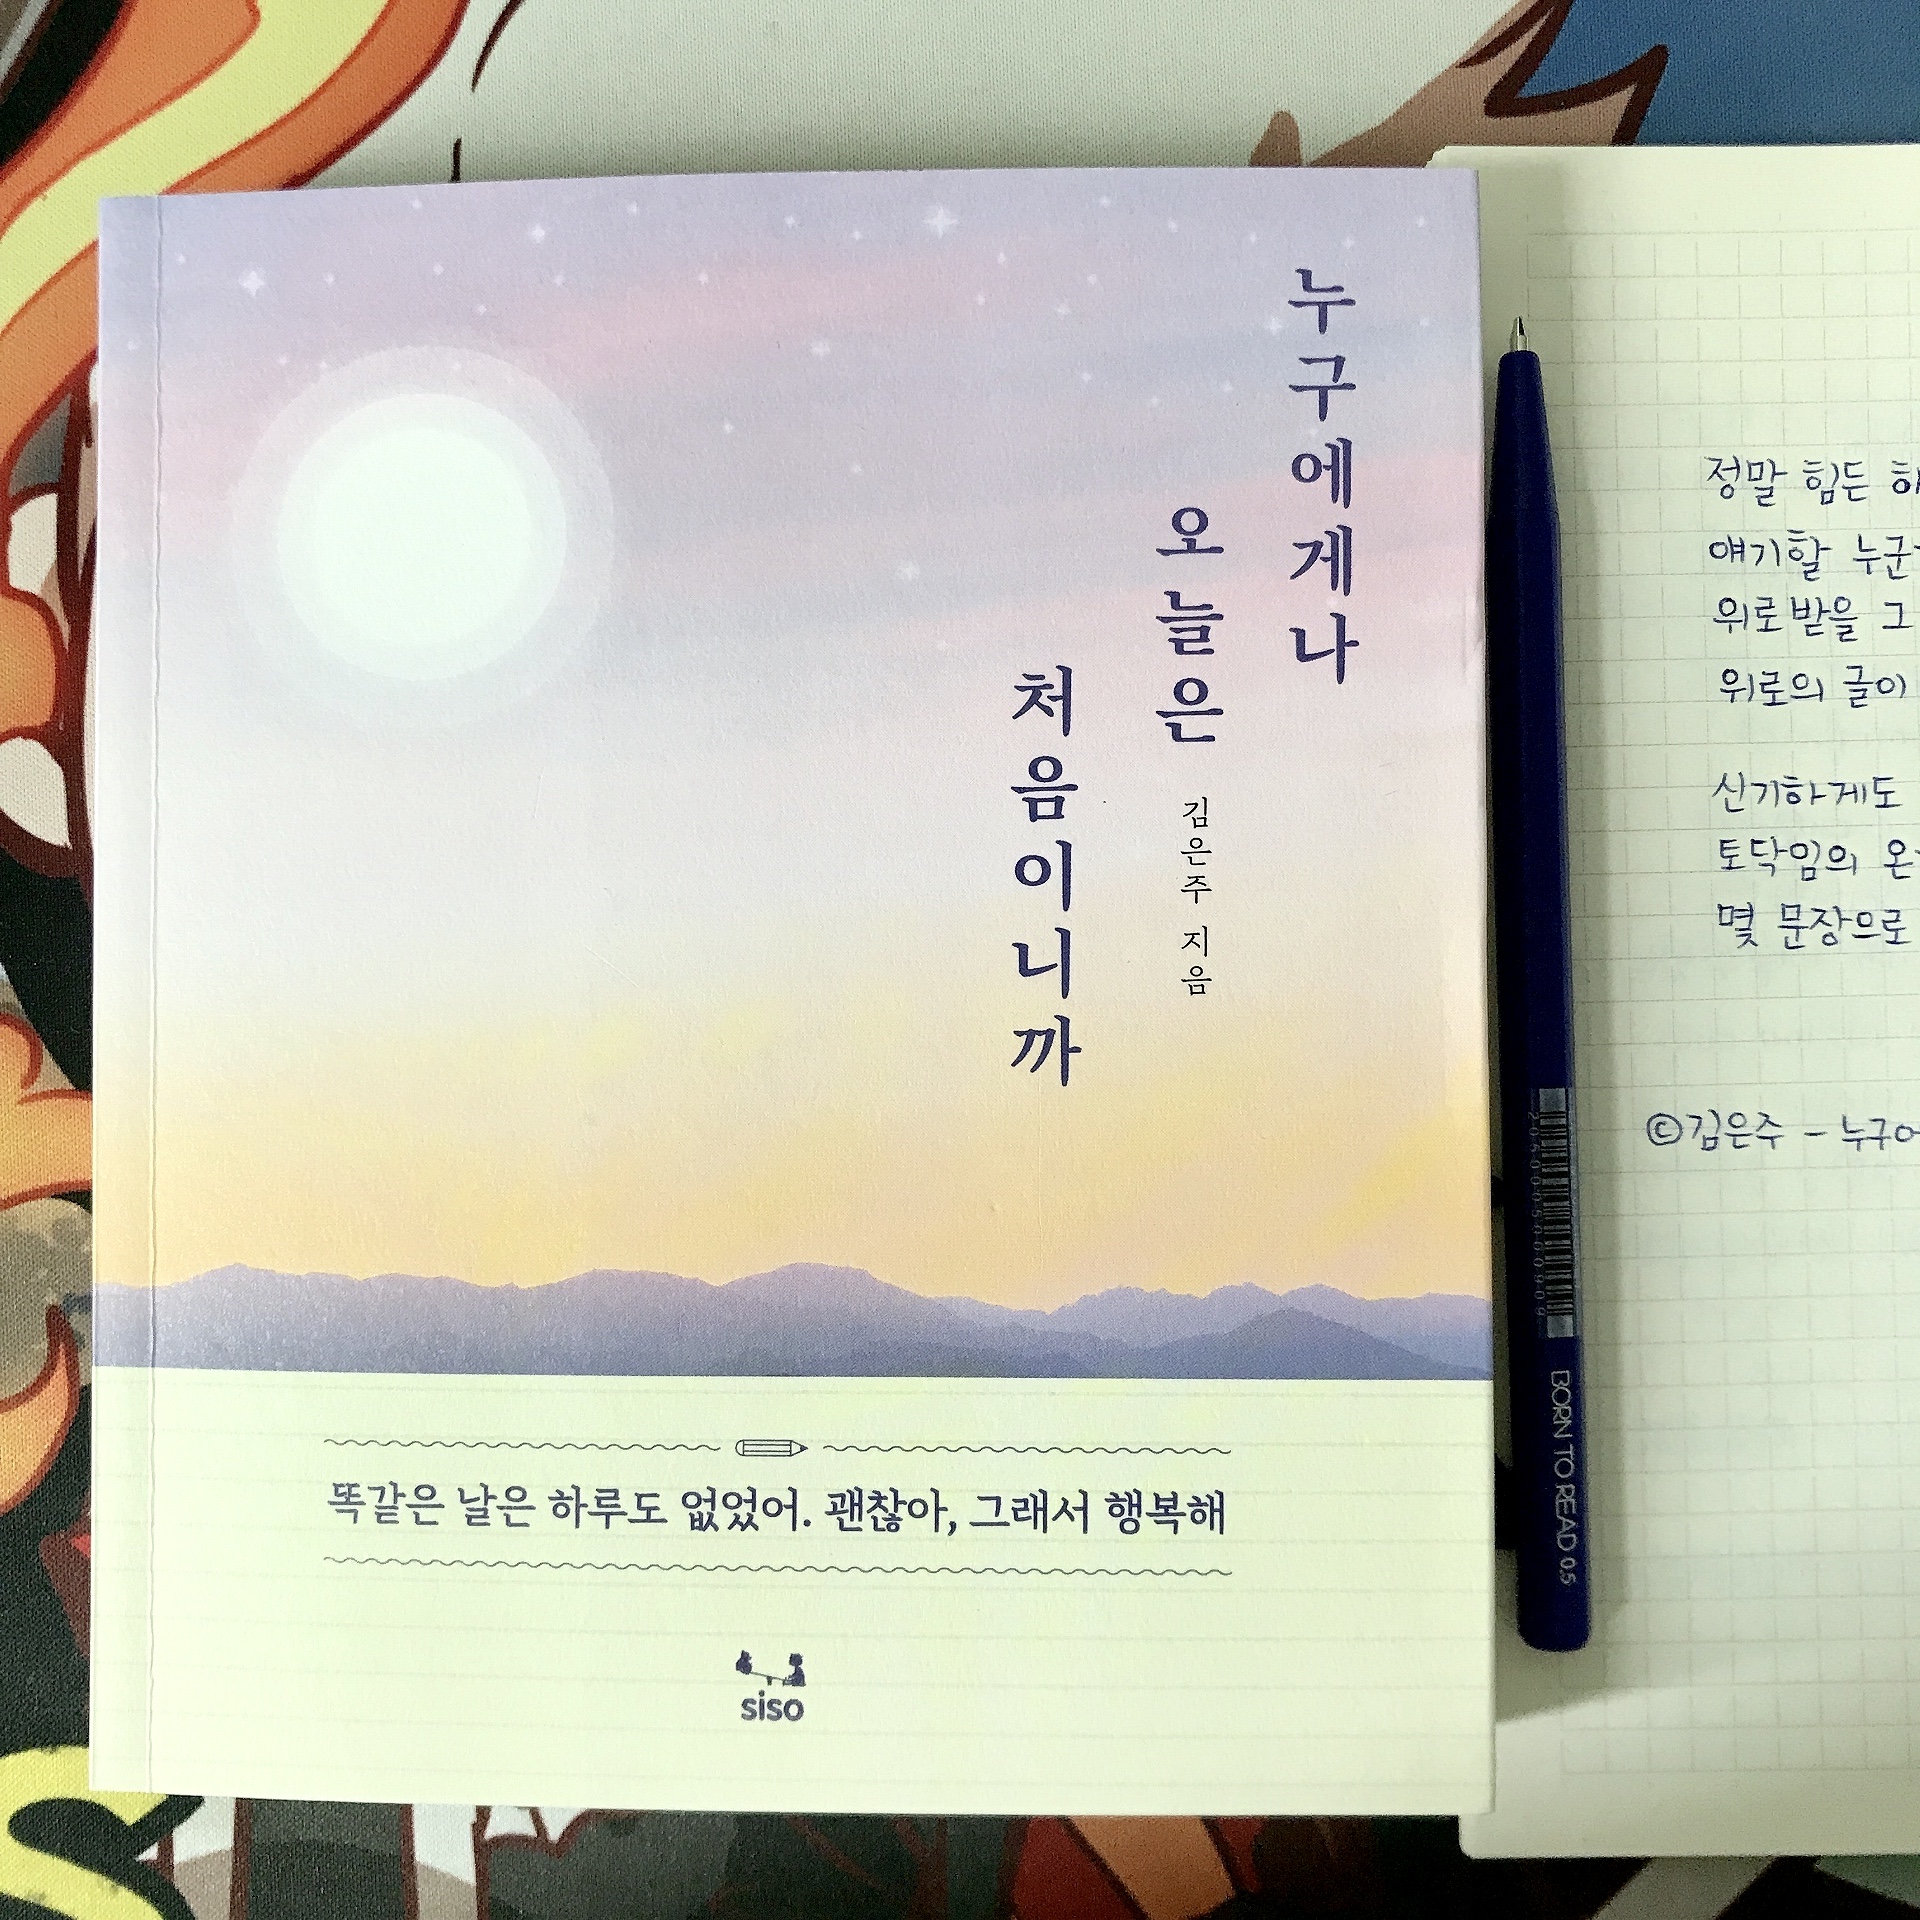 누구에게나
오늘은
처음이니까
김은주 지음
똑같은 날은 하루도 없었어. 괜찮아, 그래서 행복해
siso
BORN TO READ 0.5
정말 힘든
얘기할
위로받을 그
위로의 글이
신기하게도
토닥임의
몇 문장으로
©김은주 -